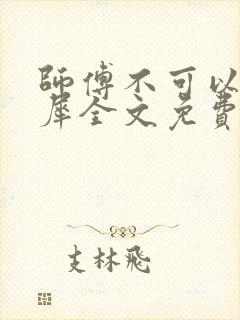 師傅不可以
犀全文免費
支林飛